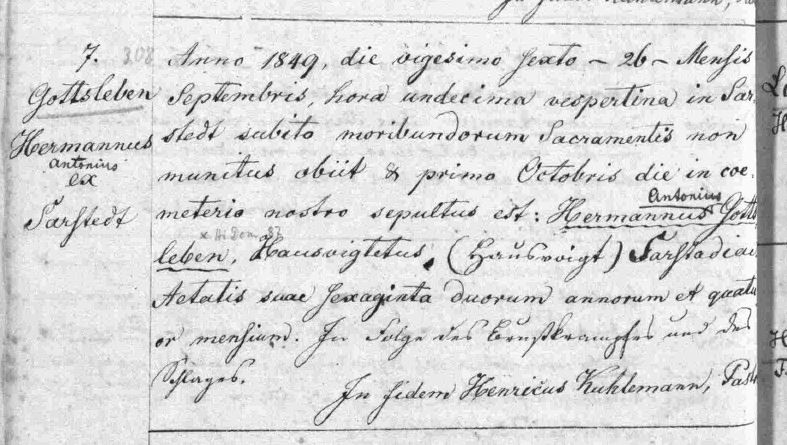 7. 308
Gottsleben
Hermannus
Antonius
ex
Sarstedt
Anno 1849, die vigesimo sexto – 26 – Mensis
Septembris, hora undecima vespertina in Sar
stedt subito moribundorum Sacramentis non
munitus obiit & primo Octobris die in coe-
meterio nostro sepultus est: Hermannus Antonius Gotts
leben, Hausvigtetus, (Hausvoigt) Sarstadiae
Aetatis suae sexaginta duorum annorum et quatu
or mensium. In Folge des Brustkrampfes und des
Schlages.
In fidem Henricus Kuhlemann, Past